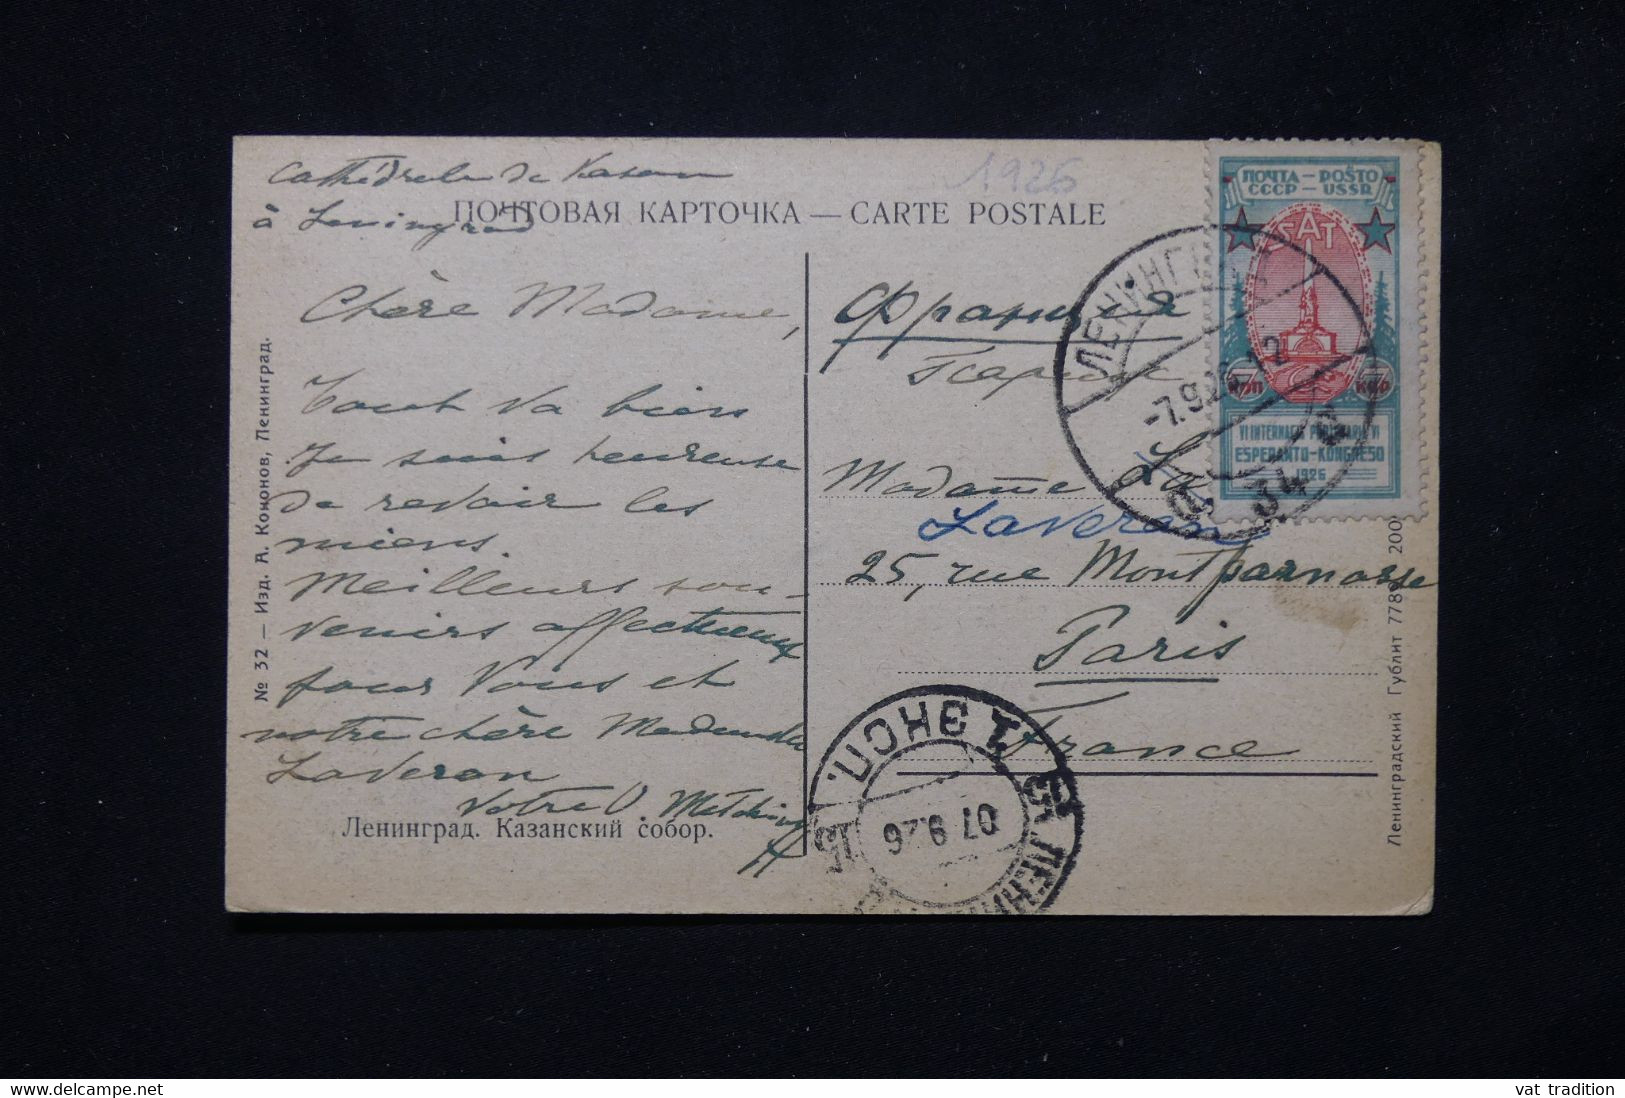 1926
Cathédrale de Kasan
à Leningrad
ПОЧТОВАЯ КАРТОЧКА — CARTE POSTALE
Chère Madame,
Tout va bien
Je suis heureuse
de revoir les
miens.
Meilleurs sou-
venirs affectueux
pour Vous et
votre chère
Laveran
Votre O. Metchnikoff
Ленинград. Казанский собор.
№ 32 — Изд. А. Кононов, Ленинград.
Франция
Madame La
Laveran
25, rue Montparnasse
Paris
France
ПОЧТА – POŜTO
СССР – USSR
SAT
7 коп 7 kop
VI INTERNACIA PROLETARIA VI
ESPERANTO-KONGRESO
1926
ЛЕНИНГРАД
-7.9.26.12
1 ЭКСП.
07 9.26
15
ЛЕНИН
Ленинградский Гублит 778 200
vat tradition